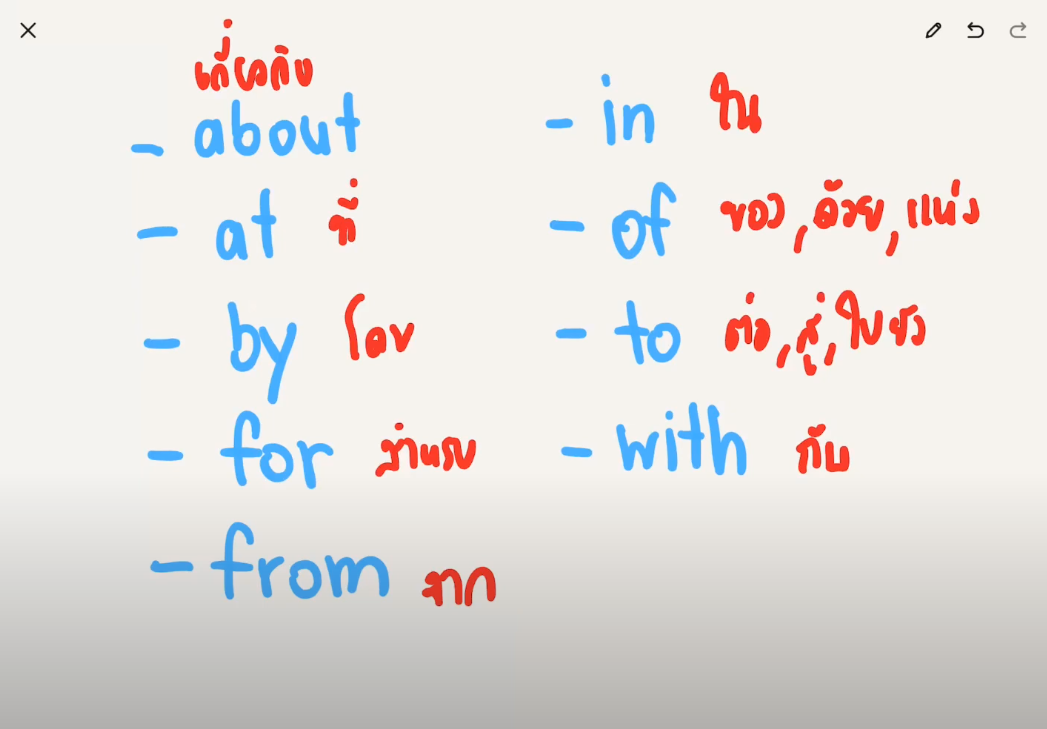 เกี่ยวกับ
- about
- at ที่
- by โดย
- for สำหรับ
- from จาก
- in ใน
- of ของ, ด้วย, แห่ง
- to ต่อ, สู่, ไปยัง
- with กับ